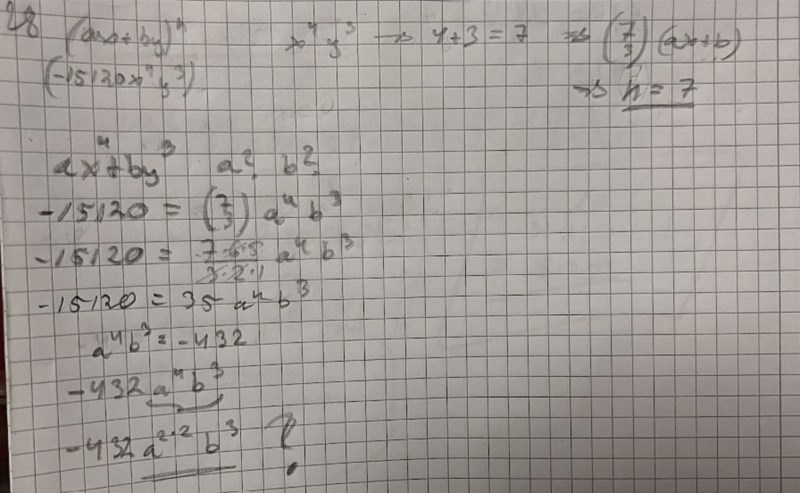 28 (ax+by)ⁿ x⁴ y³ → 4+3 = 7 ⇒ (7 3) (ax+b)
(-15120x⁴y³) ⇒ n = 7
ax⁴+by³ a? b?
-15120 = (7 3) a⁴ b³
-15120 = 7·6·5/3·2·1 a⁴ b³
-15120 = 35 a⁴ b³
a⁴b³ = -432
-432 a⁴b³
-432 a²·² b³ ?